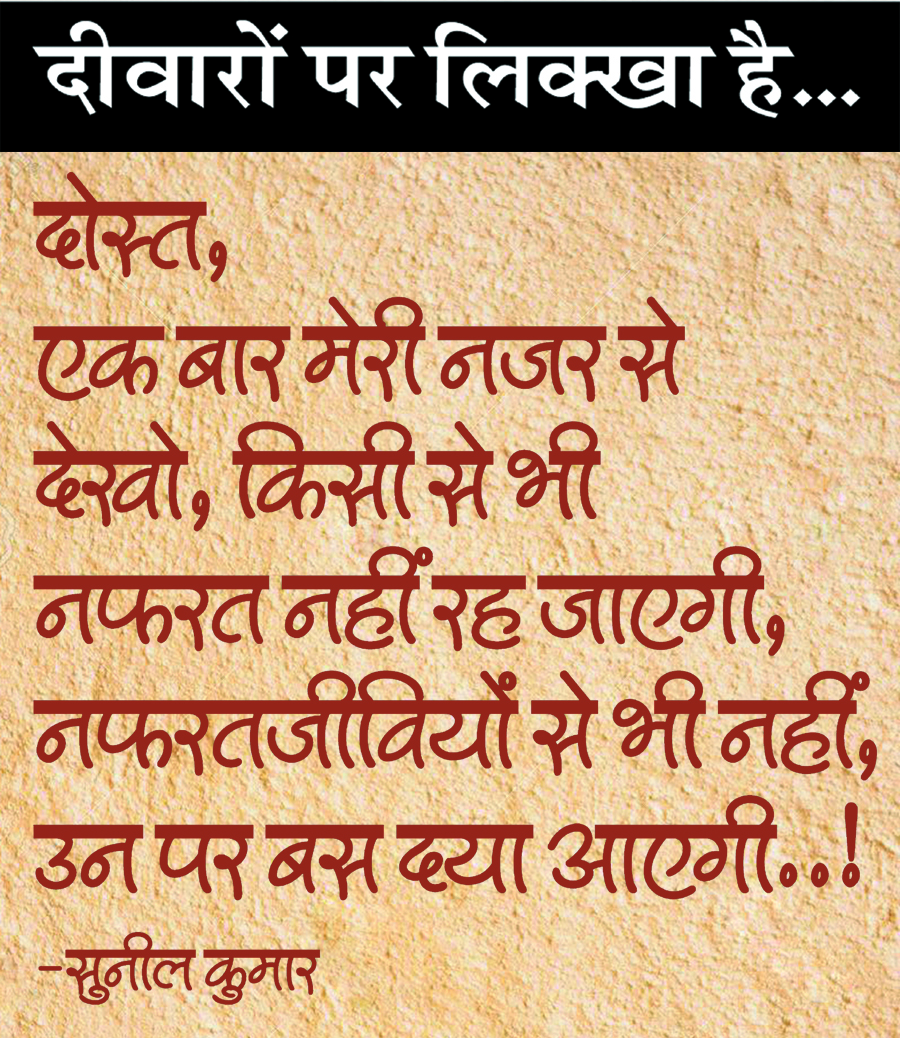 दीवारों पर लिक्खा है...
दोस्त,
एक बार मेरी नजर से
देखो, किसी से भी
नफरत नहीं रह जाएगी,
नफरतजीवियों से भी नहीं,
उन पर बस दया आएगी..!
-सुनील कुमार